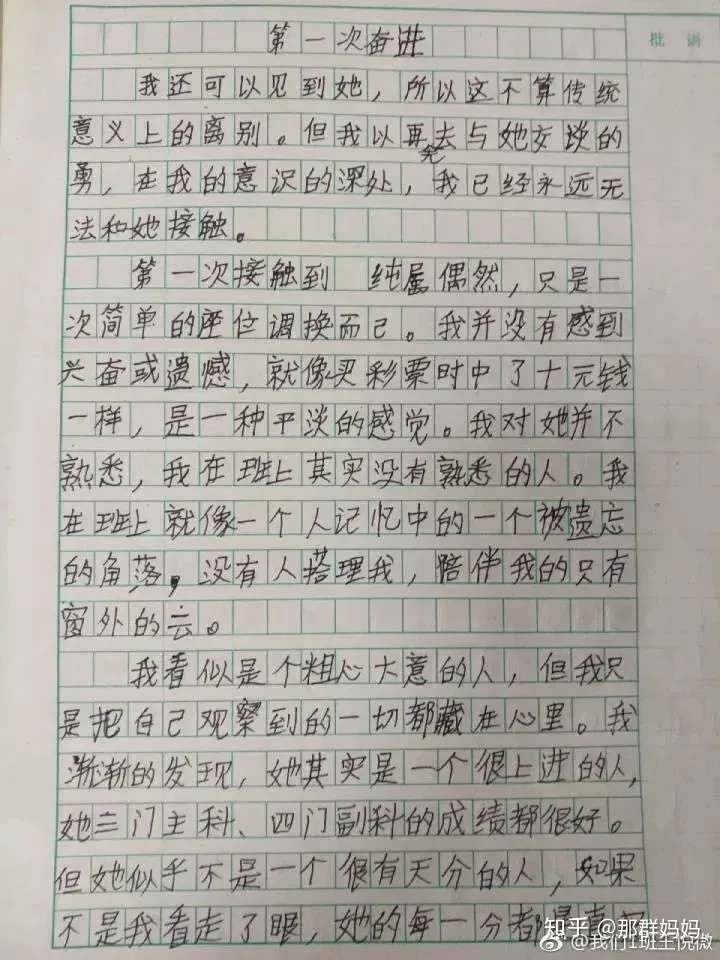 批语
第一次奋进
我还可以见到她，所以这不算传统
意义上的离别。但我以再去与她交谈的
勇，在我的意识的深处，我已经永远无
法和她接触。
第一次接触到 纯属偶然，只是一
次简单的座位调换而已。我并没有感到
兴奋或遗憾，就像买彩票时中了十元钱
一样，是一种平淡的感觉。我对她并不
熟悉，我在班上其实没有熟悉的人。我
在班上就像一个人记忆中的一个被遗忘
的角落，没有人搭理我，陪伴我的只有
窗外的云。
我看似是个粗心大意的人，但我只
是把自己观察到的一切都藏在心里。我
渐渐的发现，她其实是一个很上进的人，
她三门主科、四门副科的成绩都很好。
但她似乎不是一个很有天分的人，如果
不是我看走了眼，她的每一分都是
知乎 @那群妈妈
@我们1班主倪微